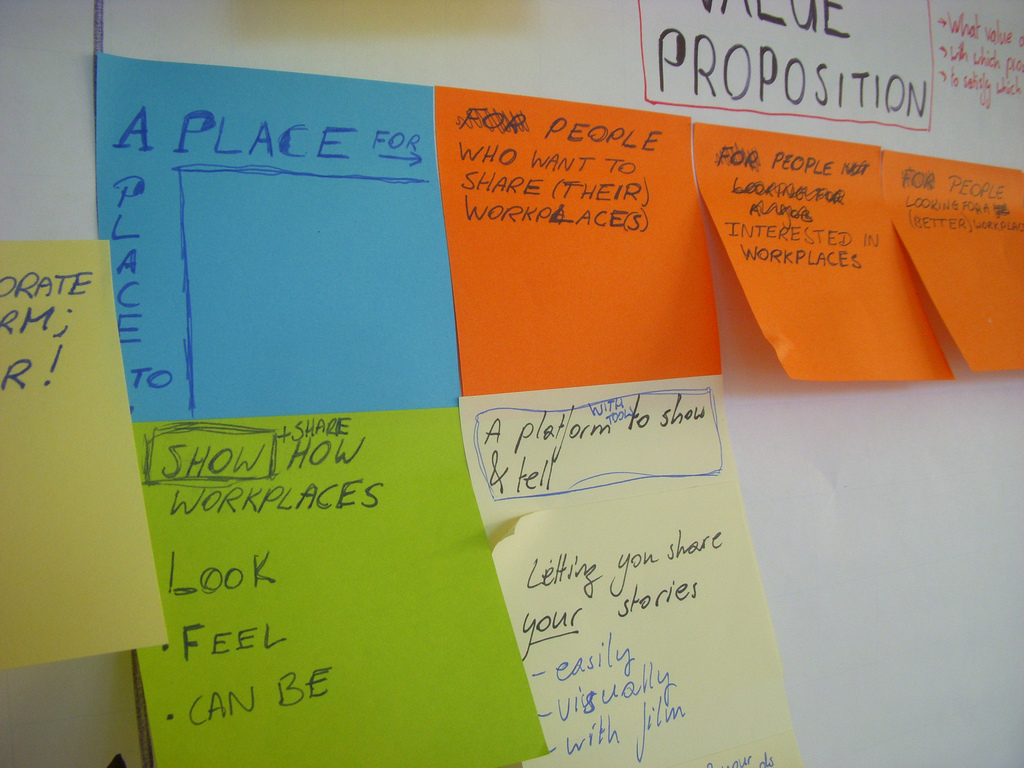 VALUE
PROPOSITION
→ What value
→ with which
→ to satisfy which
A PLACE FOR →
A PLACE TO
FOR PEOPLE
WHO WANT TO
SHARE (THEIR)
WORKPLACE(S)
FOR PEOPLE NOT
LOOKING FOR
INTERESTED IN
WORKPLACES
FOR PEOPLE
LOOKING FOR A
(BETTER) WORKPLAC
ORATE
RM;
R!
SHOW + SHARE HOW
WORKPLACES
LOOK
• FEEL
• CAN BE
A platform WITH TOOLS to show
& tell
Letting you share
your stories
- easily
- visually
- with film